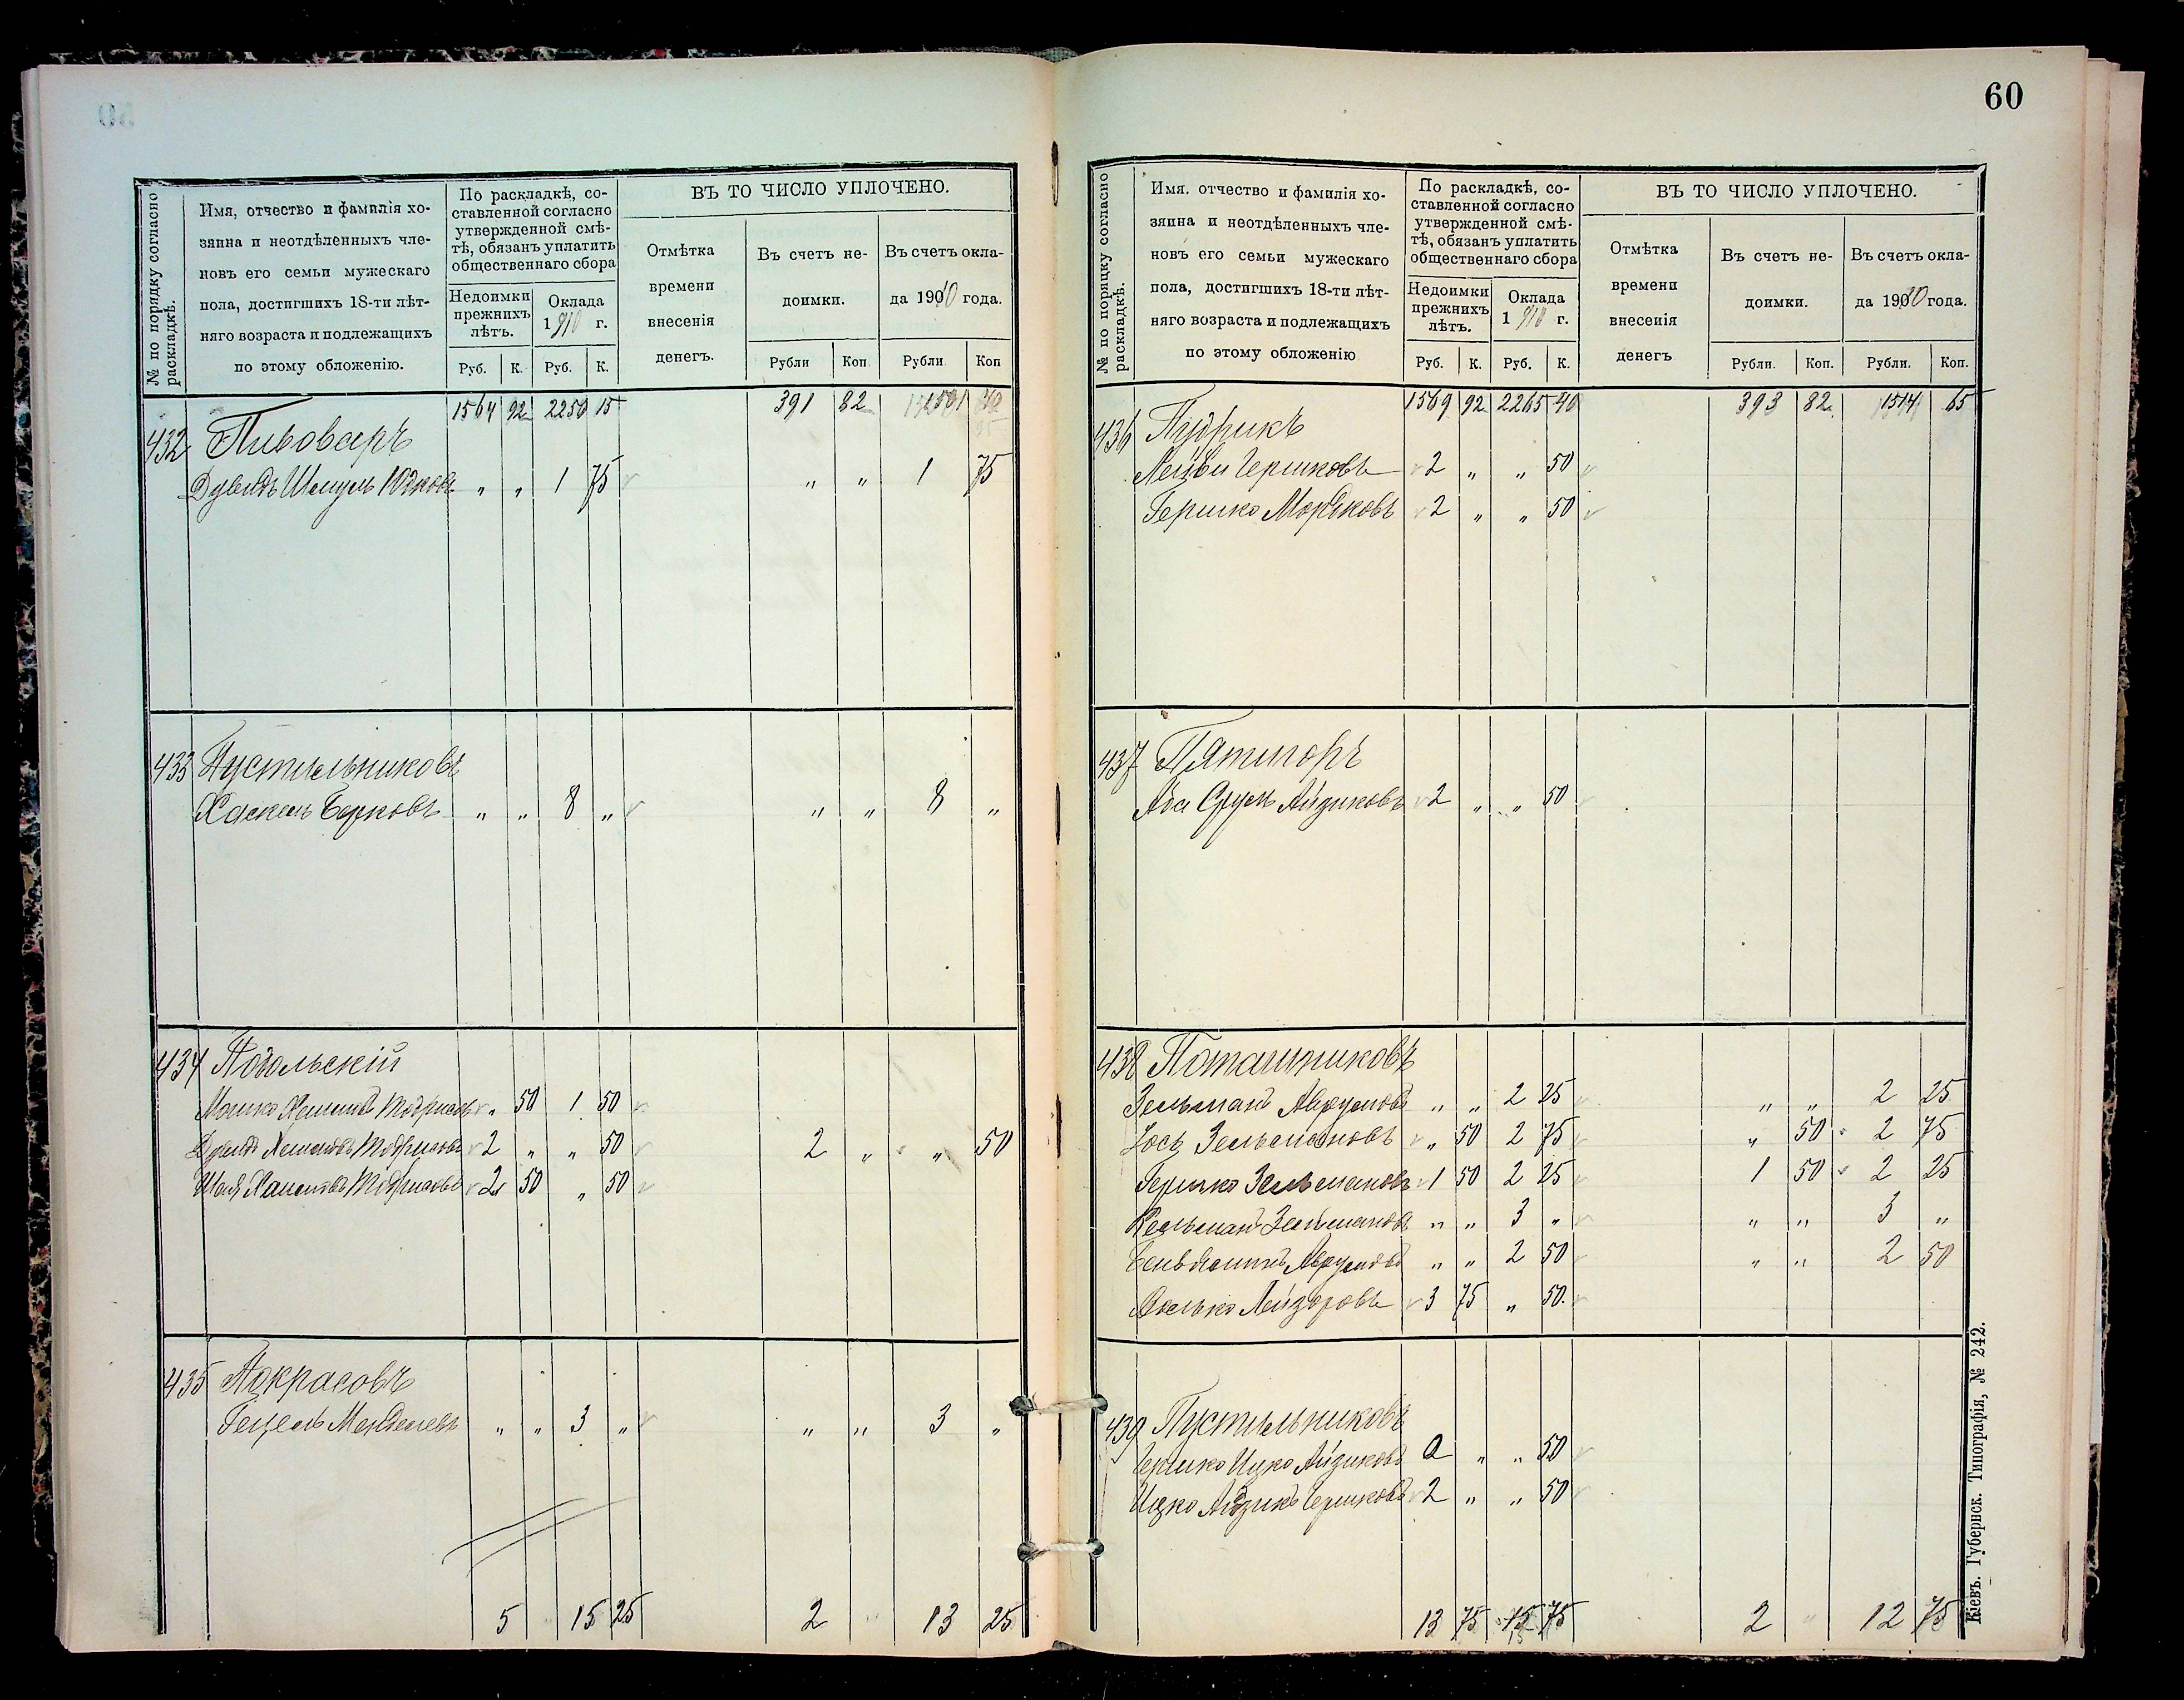 60
№ по порядку согласно раскладкѣ.
Имя, отчество и фамилія хо-
зяина и неотдѣленныхъ чле-
новъ его семьи мужескаго
пола, достигшихъ 18-ти лѣт-
няго возраста и подлежащихъ
по этому обложенію.
По раскладкѣ, со-
ставленной согласно
утвержденной смѣ-
тѣ, обязанъ уплатить
общественнаго сбора
Недоимки прежнихъ лѣтъ.
Оклада 1910 г.
Руб. К. Руб. К.
ВЪ ТО ЧИСЛО УПЛОЧЕНО.
Отмѣтка
времени
внесенія
денегъ.
Въ счетъ не-
доимки.
Въ счетъ окла-
да 1910 года.
Рубли Коп. Рубли Коп
1564 92 2250 15 391 82 1501
432 Пивоваръ
Дувидъ Шмуль Юдковъ „ „ 1 75 „ „ 1 75
433 Пустыльниковъ
Хаскель Берковъ „ „ 8 „ „ „ 8 „
434 Подольскій
Мошко „ 50 1 50
Дувидъ 2 „ „ 50 2 „ „ 50
2 50 „ 50
435
Гецель Менделевъ „ „ 3 „ „ „ 3 „
5 15 25 2 13 25
№ по порядку согласно раскладкѣ.
Имя, отчество и фамилія хо-
зяина и неотдѣленныхъ чле-
новъ его семьи мужескаго
пола, достигшихъ 18-ти лѣт-
няго возраста и подлежащихъ
по этому обложенію
По раскладкѣ, со-
ставленной согласно
утвержденной смѣ-
тѣ, обязанъ уплатить
общественнаго сбора
Недоимки прежнихъ лѣтъ.
Оклада 1910 г.
Руб. К. Руб. К.
ВЪ ТО ЧИСЛО УПЛОЧЕНО.
Отмѣтка
времени
внесенія
денегъ
Въ счетъ не-
доимки.
Въ счетъ окла-
да 1910 года.
Рубли. Коп. Рубли. Коп.
1569 92 2265 40 393 82 1514 65
436 Пудрикъ
Лейви Гершковъ 2 „ „ 50
Гершко Мордковъ 2 „ „ 50
437 Пятигоръ
Аба Сруль Айзиковъ 2 „ „ 50
438 Поташниковъ
Зельманъ Аврумовъ „ „ 2 25 „ „ 2 25
Іось Зельмановъ „ 50 2 75 „ 50 2 75
Гершко Зельмановъ 1 50 2 25 1 50 2 25
Кельманъ Зельмановъ „ „ 3 „ „ „ 3 „
Беньяминъ Аврумовъ „ „ 2 50 „ „ 2 50
Лейзоровъ 3 75 „ 50
439 Пустыльниковъ
Гершко Ицко Айзиковъ 2 „ „ 50
Ицко Айзикъ Гершковъ 2 „ „ 50
13 75 75 2 „ 12 75
Кіевъ. Губернск. Типографія, № 242.